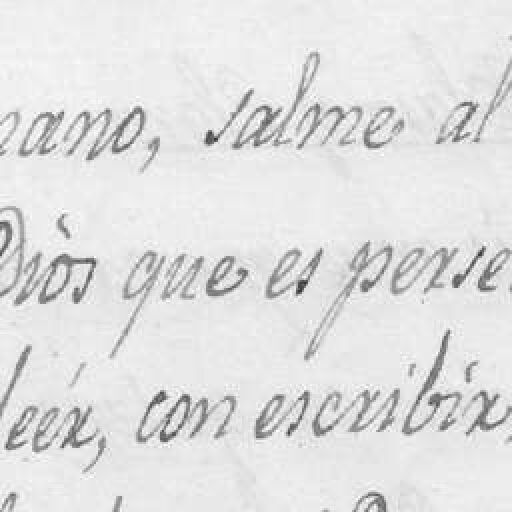 mano, salme al
Diòs que es perse
leér, con escribir,